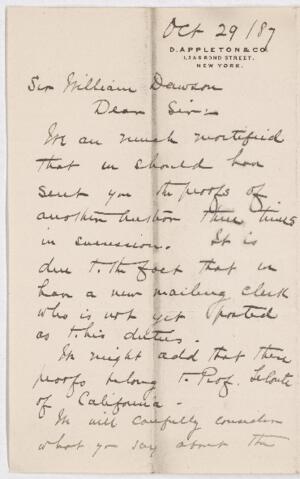 Oct 29/87
D. APPLETON & CO.
1, 3 & 5 BOND STREET.
NEW YORK.
Sir William Dawson
Dear Sir:-
We are much mortified
that we should have
sent you the proofs of
another author three times
in succession. It is
due to the fact that we
have a new mailing clerk
who is not yet posted
as to his duties.
We might add that these
proofs belong to Prof. LeConte
of California.
We will carefully consider
what you say about the